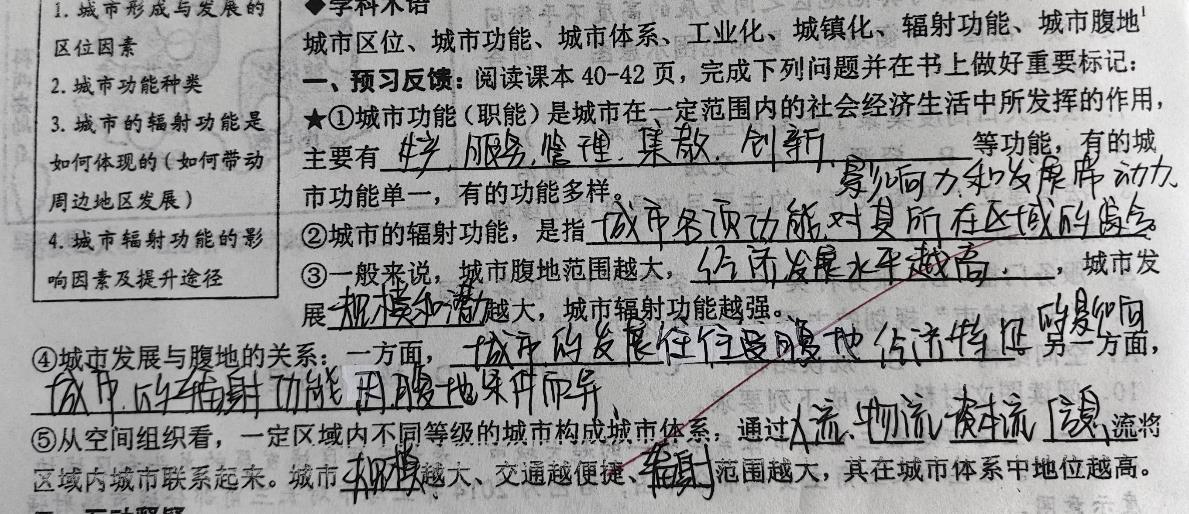 1. 城市形成与发展的
区位因素
2. 城市功能种类
3. 城市的辐射功能是
如何体现的(如何带动
周边地区发展)
4. 城市辐射功能的影
响因素及提升途径
◆学科术语
城市区位、城市功能、城市体系、工业化、城镇化、辐射功能、城市腹地
一、预习反馈:阅读课本 40-42 页,完成下列问题并在书上做好重要标记:
★①城市功能(职能)是城市在一定范围内的社会经济生活中所发挥的作用,
主要有 生产、服务、管理、集散、创新、 等功能,有的城
市功能单一,有的功能多样。
影响力和发展带动力
②城市的辐射功能,是指 城市各项功能对其所在区域的综合
③一般来说,城市腹地范围越大, 经济发展水平越高. ,城市发
展 规模和潜力 越大,城市辐射功能越强。
④城市发展与腹地的关系:一方面, 城市的发展往往受腹地经济特征的影响 另一方面,
城市的辐射功能因腹地条件而异
⑤从空间组织看,一定区域内不同等级的城市构成城市体系,通过 人流、物流、资本流、信息 流将
区域内城市联系起来。城市 规模 越大、交通越便捷、辐射 范围越大,其在城市体系中地位越高。